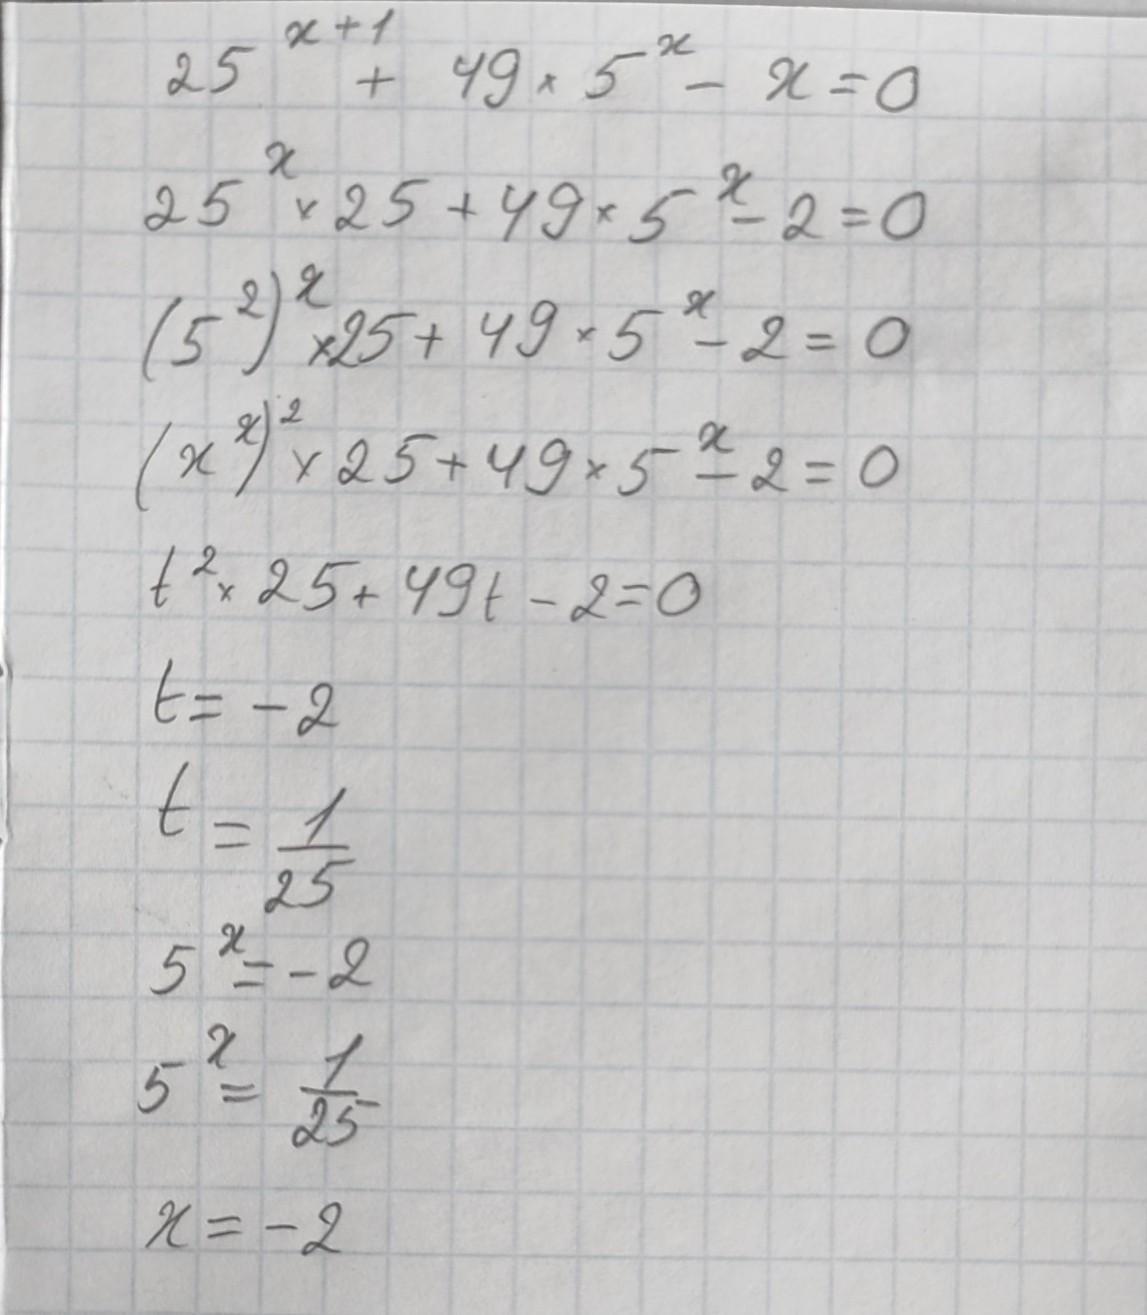 25^{x+1} + 49 × 5^x - x = 0
25^x × 25 + 49 × 5^x - 2 = 0
(5^2)^x × 25 + 49 × 5^x - 2 = 0
(x^x)^2 × 25 + 49 × 5^x - 2 = 0
t^2 × 25 + 49t - 2 = 0
t = -2
t = 1/25
5^x = -2
5^x = 1/25
x = -2